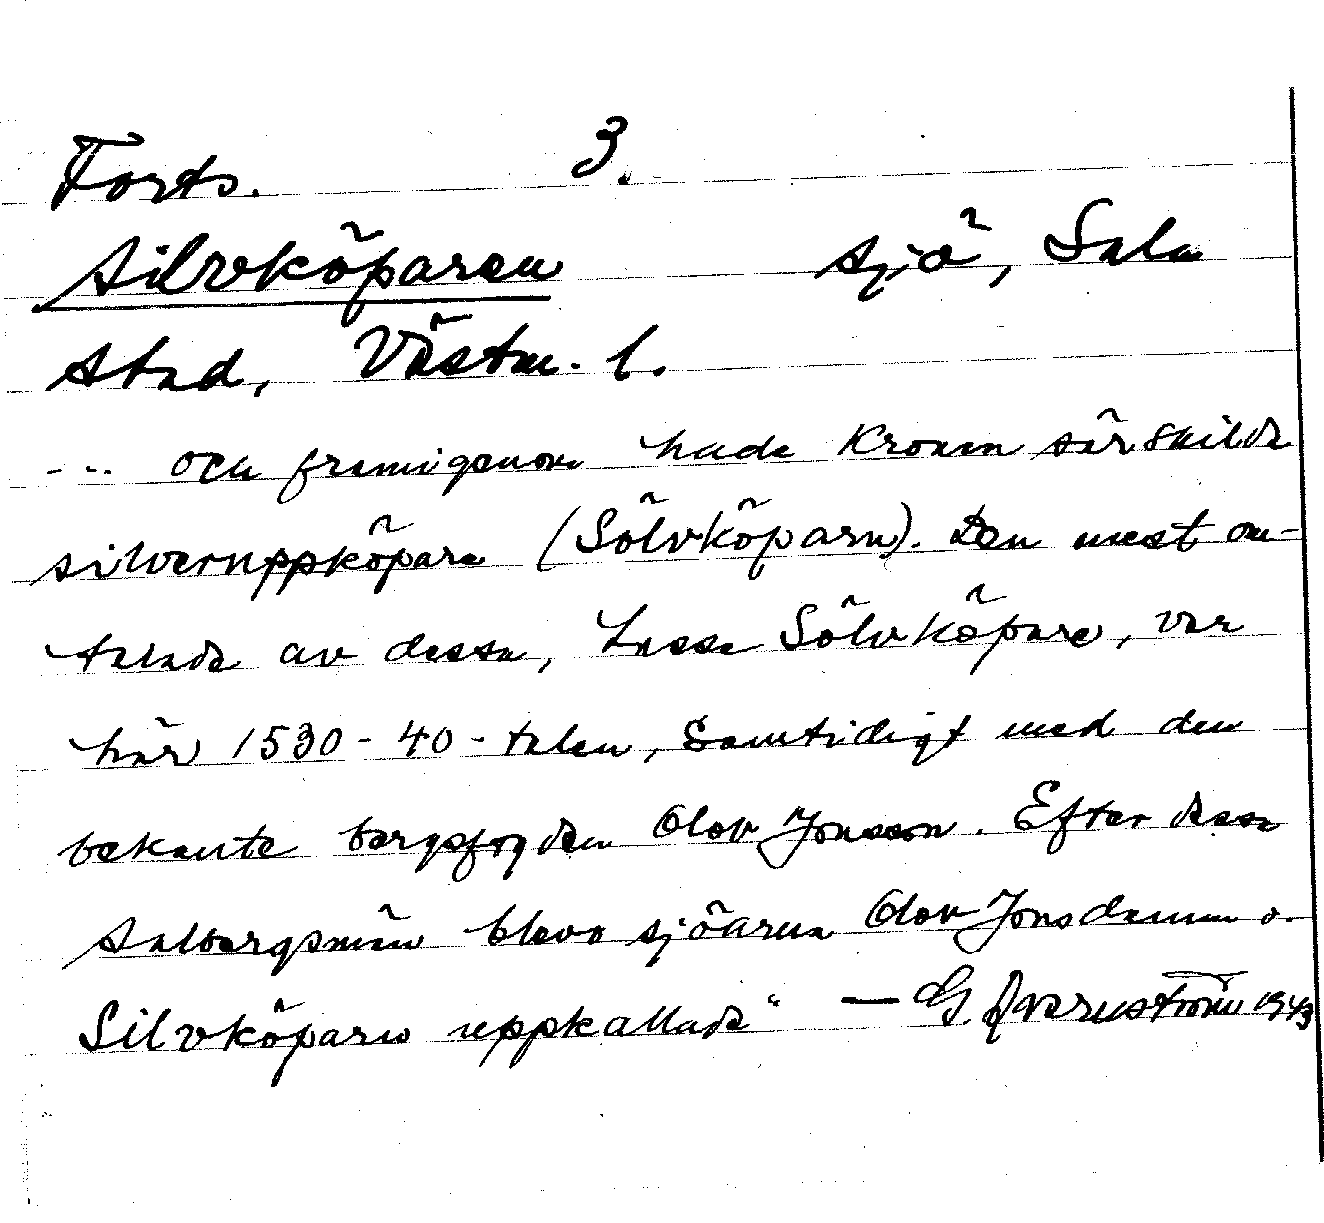 Forts. 3.
Silvköparen sjö, Sala
stad, Västm. l.
--- och framigenom hade Kronan särskilda
silveruppköpare (Sölvköparn). Den mest om-
talade av dessa, Lasse Sölvköpare, var
här 1530-40-talen, samtidigt med den
bekante bergsfogden Olov Jonsson. Efter dessa
Salbergsmän blevo sjöarna Olov Jonsdammen o.
Silvköparen uppkallade" — G. Qvarnström 1943